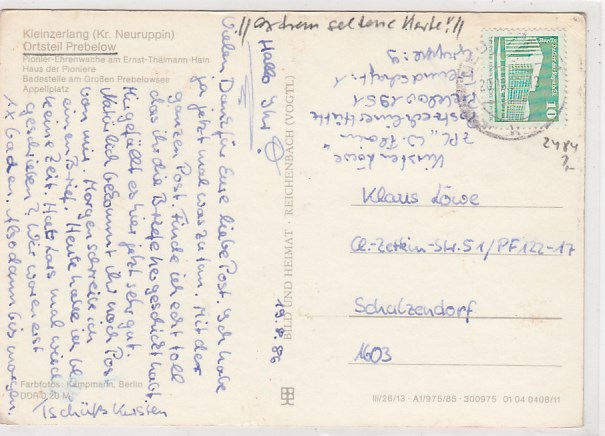 Kleinzerlang (Kr. Neuruppin)
Ortsteil Prebelow
Pionier-Ehrenwache am Ernst-Thälmann-Hain
Haus der Pioniere
Badestelle am Großen Prebelowsee
Appellplatz
seltene Karte!
Hallo Ihr!
Vielen Dank für Eure liebe Post. Ich habe
ja jetzt mal was zu tun. Mit der
ganzen Post. Finde ich echt toll
das ihr die Briefe hergeschickt habt.
Hier gefällt es hier jetzt sehr gut.
Natürlich bekommt ihr noch Post
von mir. Morgen schreibe ich
einen Brief. Heute habe ich
keine Zeit. Hat Lars mal wieder
geschrieben? Wir waren erst
1x baden. Also dann bis morgen.
Tschüß Kirsten
19.8.86
BILD UND HEIMAT · REICHENBACH (VOGTL)
Kirsten Löwe
ZPL „W. Florin"
Prebelow 1951
Gruppe: 9
10
2484
Klaus Löwe
Cl.-Zetkin-Str. 51/PF 122-17
Schulzendorf
1603
Farbfotos: Kampmann, Berlin
DDR 0,20 M
III/26/13 · A1/975/85 · 300975 01 04 0408/11